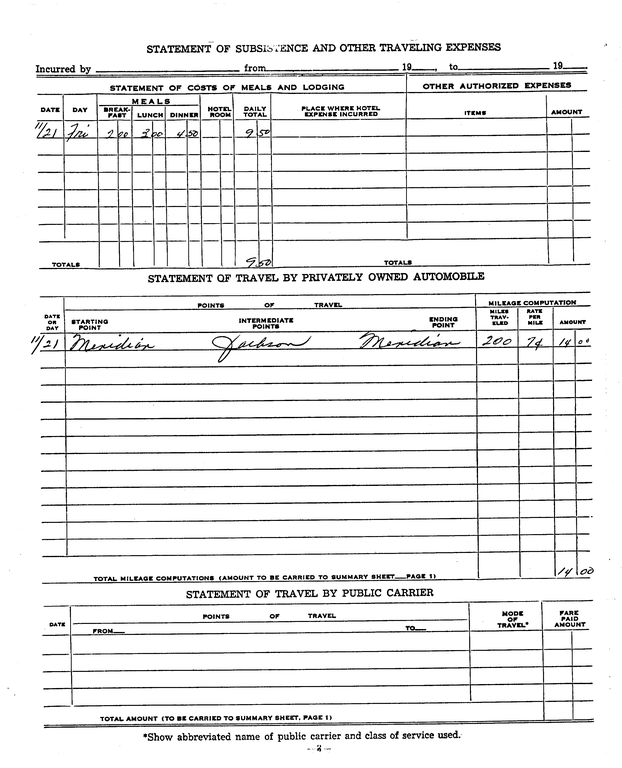 STATEMENT OF SUBSISTENCE AND OTHER TRAVELING EXPENSES
Incurred by from 19 , to 19
STATEMENT OF COSTS OF MEALS AND LODGING OTHER AUTHORIZED EXPENSES
DATE DAY MEALS HOTEL ROOM DAILY TOTAL PLACE WHERE HOTEL EXPENSE INCURRED ITEMS AMOUNT
BREAK-FAST LUNCH DINNER
11/21 Fri 2 00 3 00 4 50 9 50
TOTALS 9 50 TOTALS
STATEMENT OF TRAVEL BY PRIVATELY OWNED AUTOMOBILE
POINTS OF TRAVEL MILEAGE COMPUTATION
DATE OR DAY STARTING POINT INTERMEDIATE POINTS ENDING POINT MILES TRAV-ELED RATE PER MILE AMOUNT
11/21 Meridian Jackson Meridian 200 7¢ 14 00
TOTAL MILEAGE COMPUTATIONS (AMOUNT TO BE CARRIED TO SUMMARY SHEET—PAGE 1) 14 00
STATEMENT OF TRAVEL BY PUBLIC CARRIER
DATE POINTS OF TRAVEL MODE OF TRAVEL* FARE PAID AMOUNT
FROM TO
TOTAL AMOUNT (TO BE CARRIED TO SUMMARY SHEET, PAGE 1)
*Show abbreviated name of public carrier and class of service used.